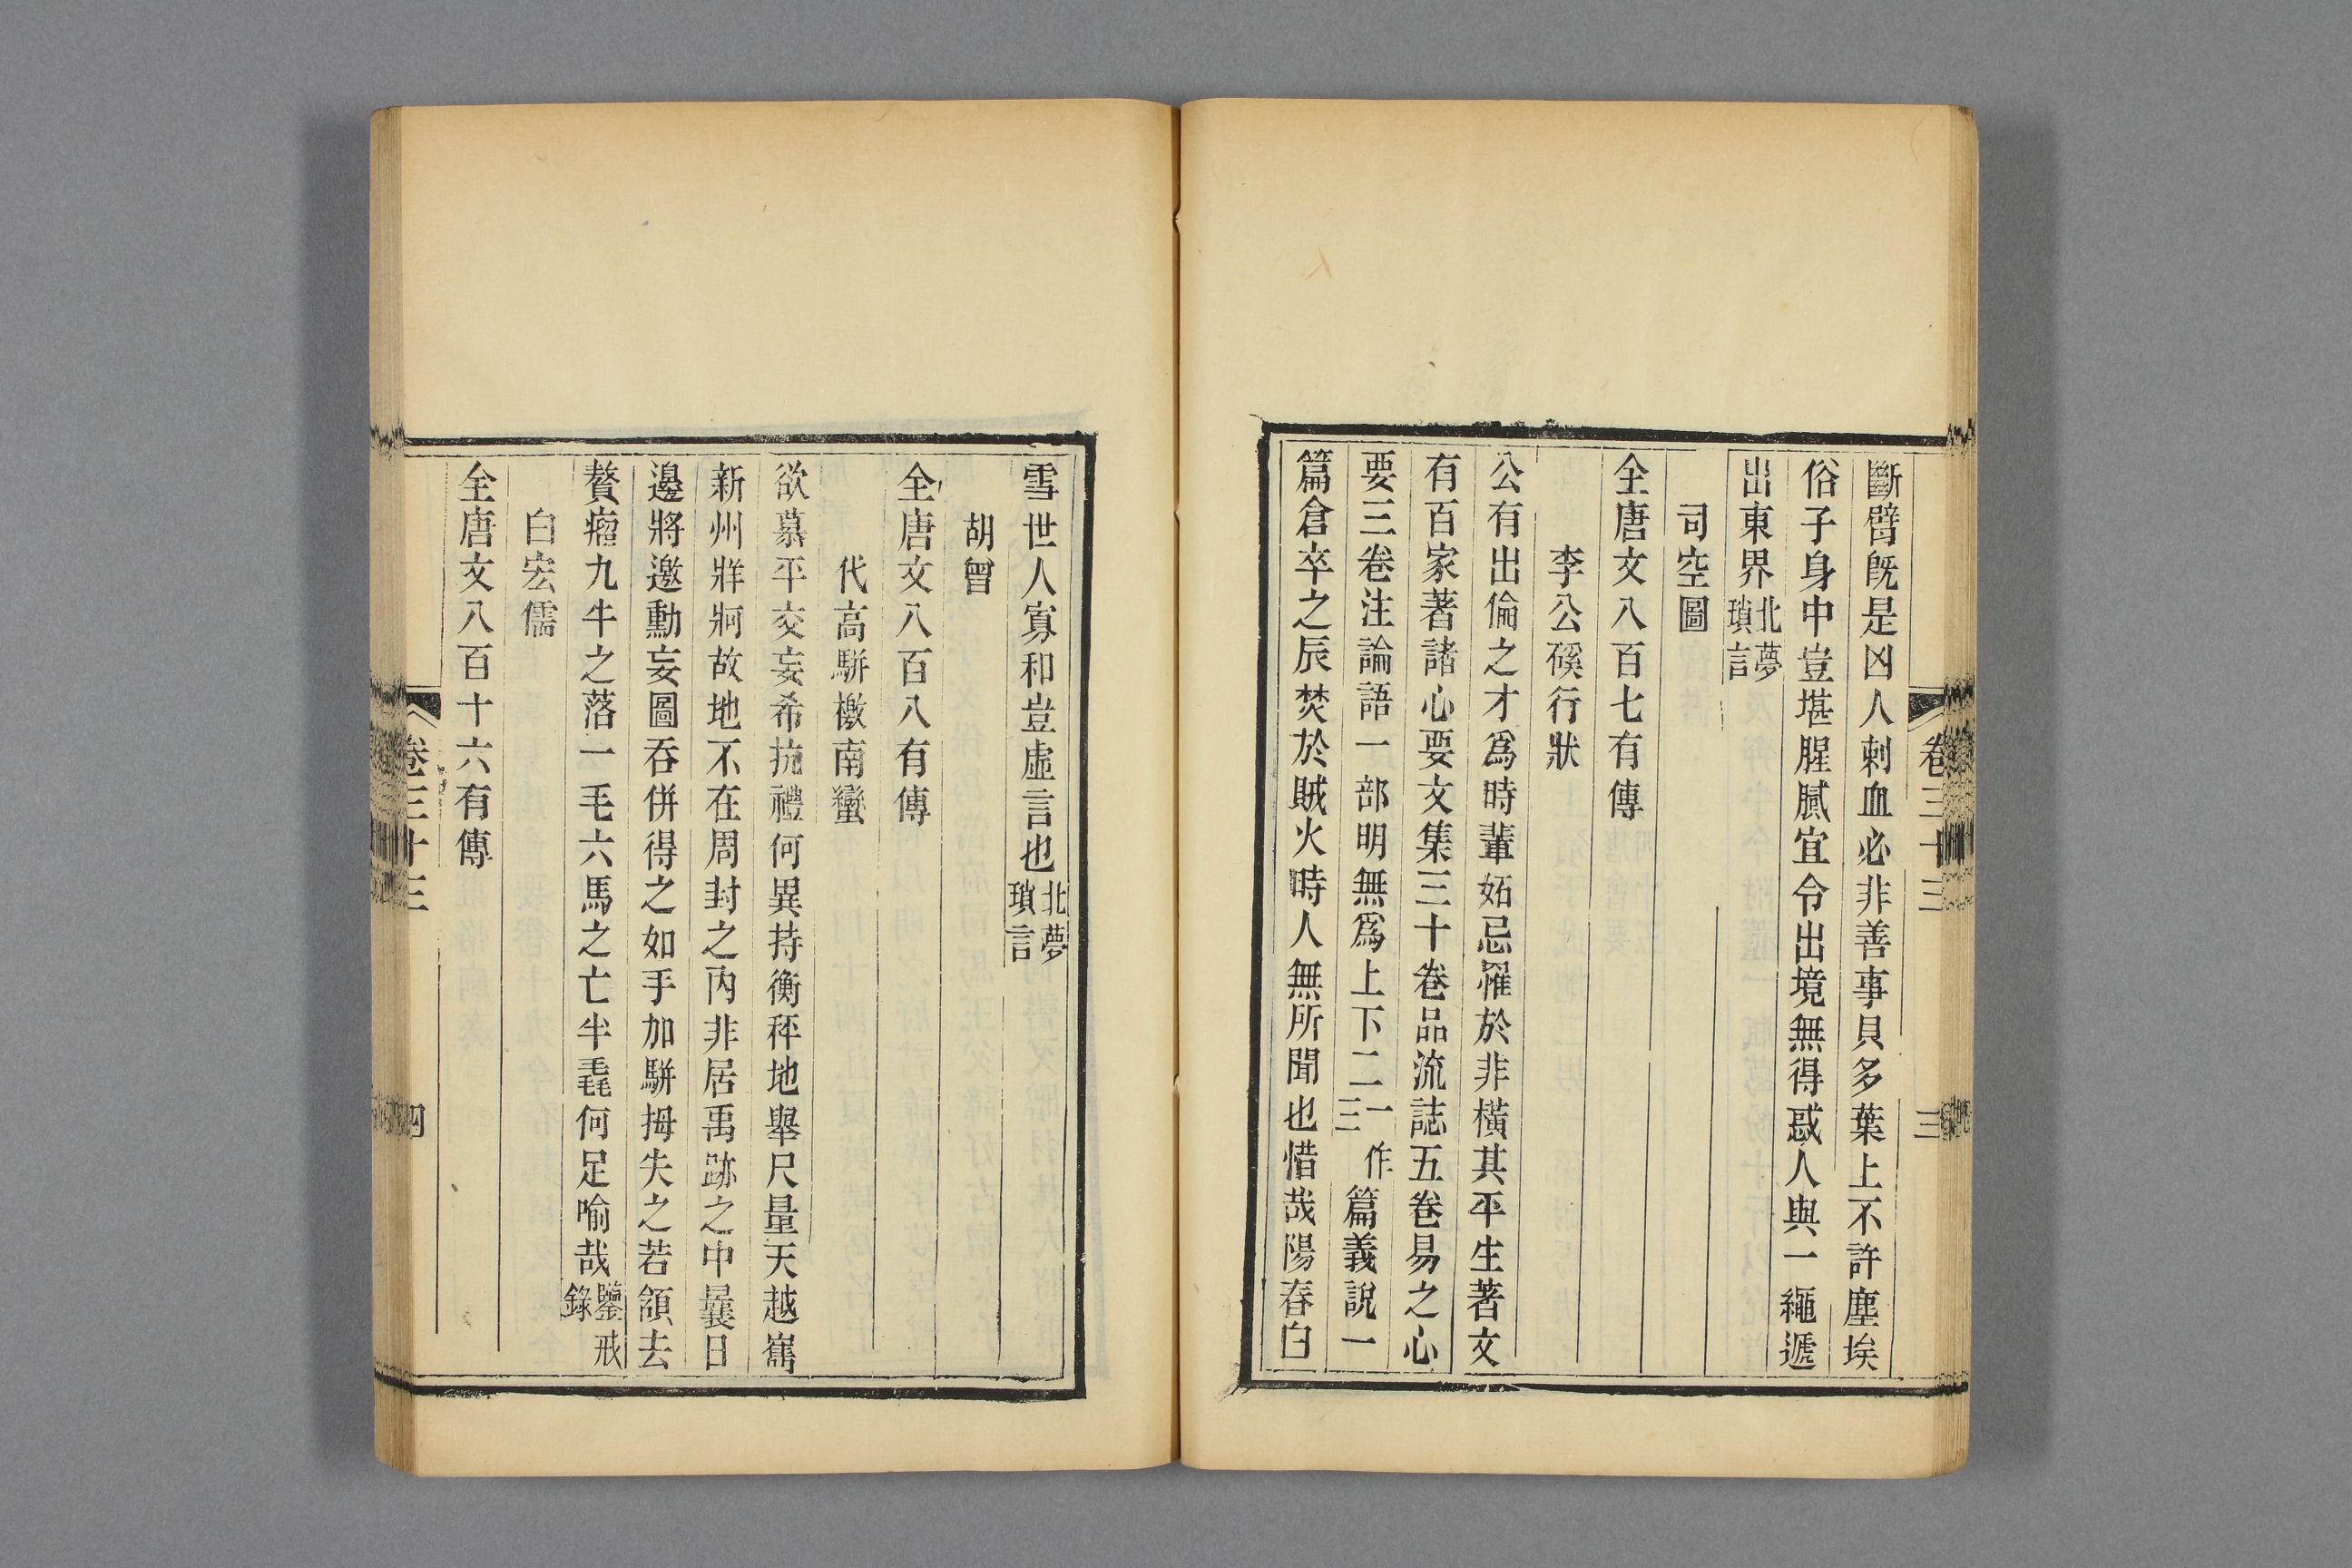 卷三十三　三
斷臂既是凶人刺血必非善事貝多葉上不許塵埃
俗子身中豈堪腥膩宜令出境無得惑人與一繩遞
出東界北夢瑣言
司空圖
全唐文八百七有傳
李公磎行狀
公有出倫之才爲時輩妬忌罹於非橫其平生著文
有百家著諸心要文集三十卷品流誌五卷易之心
要三卷注論語一部明無爲上下二一作三篇義說一
篇倉卒之辰焚於賊火時人無所聞也惜哉陽春白
雪世人寡和豈虛言也北夢瑣言
胡曾
全唐文八百八有傳
代高駢檄南蠻
欲慕平交妄希抗禮何異持衡秤地舉尺量天越嶲
新州牂牁故地不在周封之內非居禹跡之中曩日
邊將邀勳妄圖吞併得之如手加駢拇失之若頷去
贅瘤九牛之落一毛六馬之亡半毳何足喻哉鑒戒錄
白宏儒
全唐文八百十六有傳
卷三十三　四